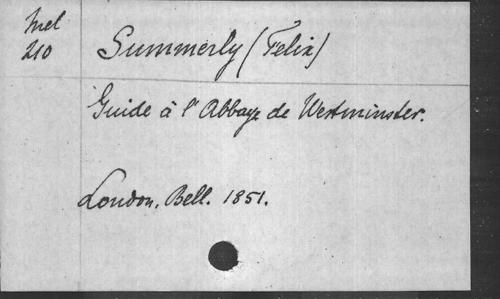 Mel
210
Summerly (Felix)
Guide à l'Abbaye de Westminster.
London, Bell. 1851.